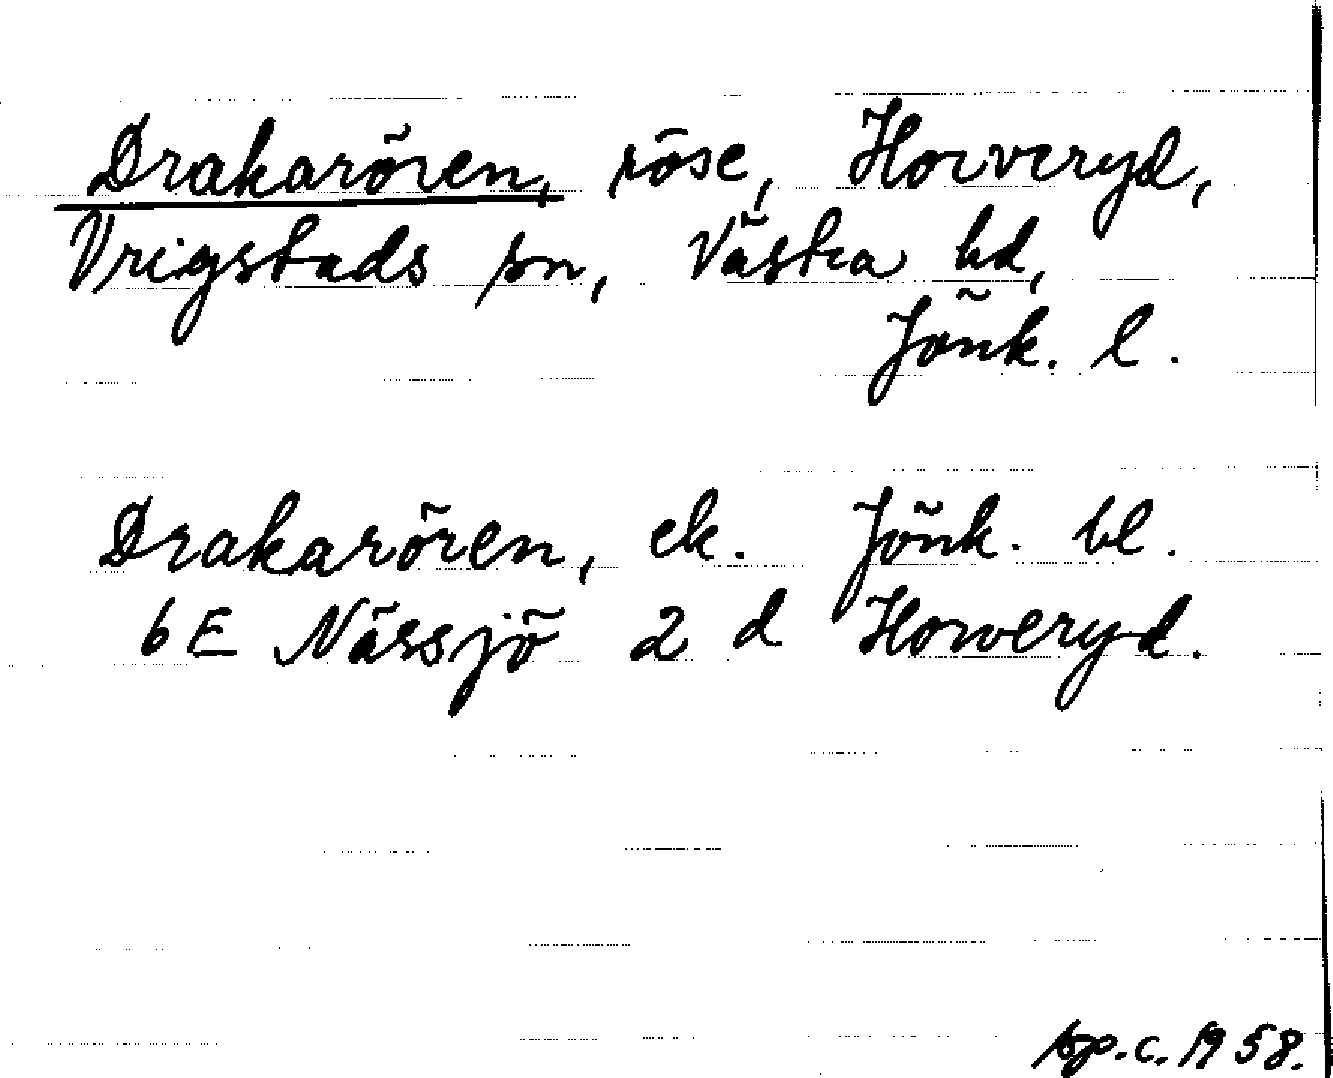 Drakarören, röse, Horveryd,
Vrigstads sn, Västra hd,
Jönk. l.
Drakarören, ek. Jönk. bl.
6E Nässjö 2 d Horveryd.
c. 1958.